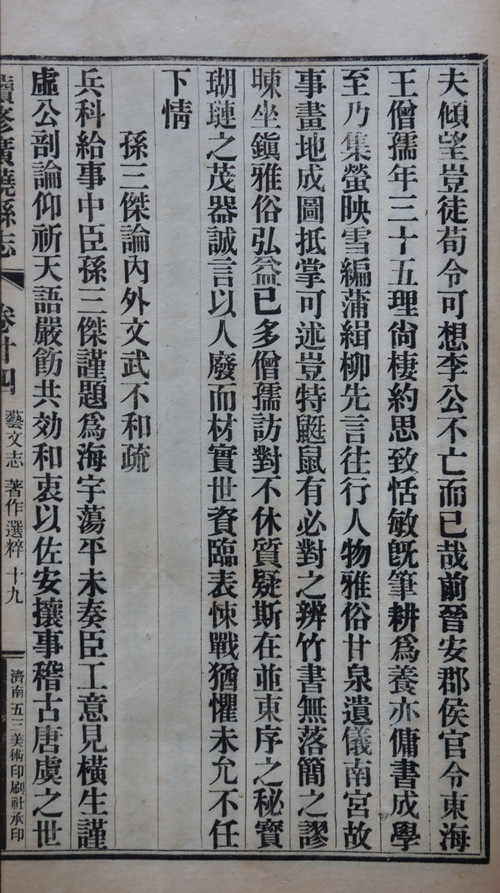 夫傾望豈徒荀令可想李公不亡而已哉前晉安郡侯官令東海
王僧孺年三十五理尙棲約思致恬敏旣筆耕爲養亦傭書成學
至乃集螢映雪編蒲緝柳先言往行人物雅俗甘泉遺儀南宮故
事畫地成圖抵掌可述豈特鼮鼠有必對之辨竹書無落簡之謬
暕坐鎭雅俗弘益已多僧孺訪對不休質疑斯在並東序之秘寶
瑚璉之茂器誠言以人廢而材實世資臨表悚戰猶懼未允不任
下情
孫三傑論內外文武不和疏
兵科給事中臣孫三傑謹題爲海宇蕩平未奏臣工意見橫生謹
虛公剖論仰祈天語嚴飭共効和衷以佐安攘事稽古唐虞之世
續修廣饒縣志 卷廿四 藝文志 著作選粹 十九 濟南五三美術印刷社承印